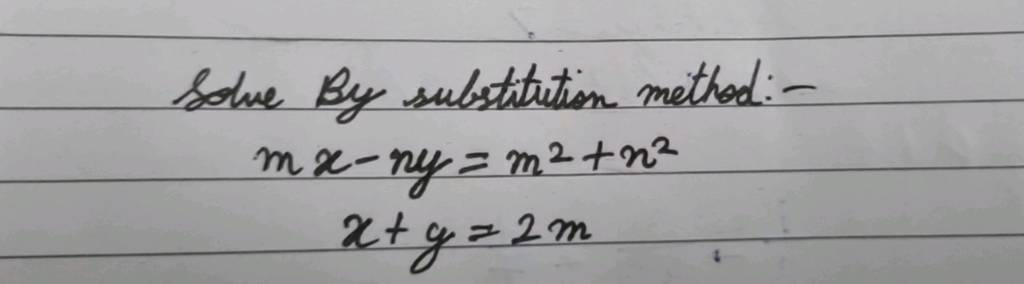 Solve By substitution method:-
mx-ny = m²+n²
x+y = 2m